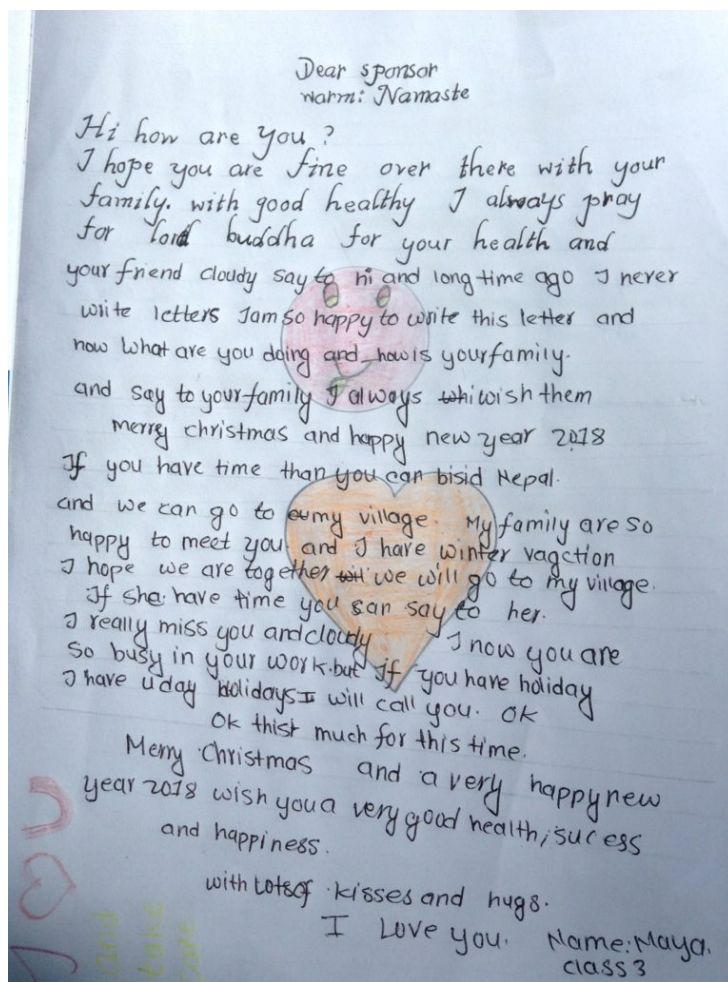 Dear sponsor
warm: Namaste
Hi how are you ?
I hope you are fine over there with your
family. with good healthy I always pray
for lord buddha for your health and
your friend cloudy say to hi and long time ago I never
write letters Iam so happy to write this letter and
now what are you doing and how is your family.
and say to your family I always whi wish them
merry christmas and happy new year 2018
If you have time than you can bisid Nepal.
and we can go to my village. My family are so
happy to meet you and I have winter vagction
I hope we are together we will go to my village.
If she have time you can say to her.
I really miss you and cloudy I now you are
so busy in your work. but if you have holiday
I have u day holidays I will call you. OK
Ok thist much for this time.
Merry Christmas and a very happy new
year 2018 wish you a very good health, sucess
and happiness.
with Lots of kisses and hugs.
I Love you. Name: Maya.
class 3
I ♡ U
and
take
care